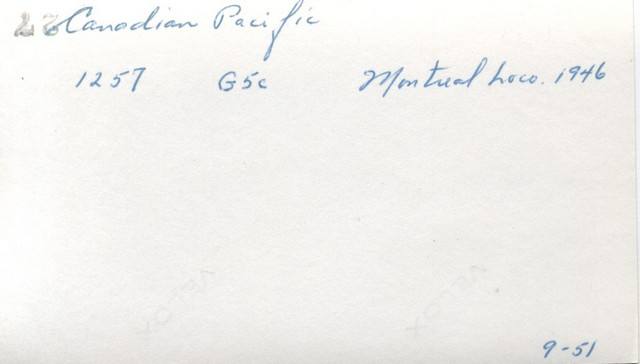 Canadian Pacific
1257 G5c Montreal Loco. 1946
VELOX VELOX
9-51